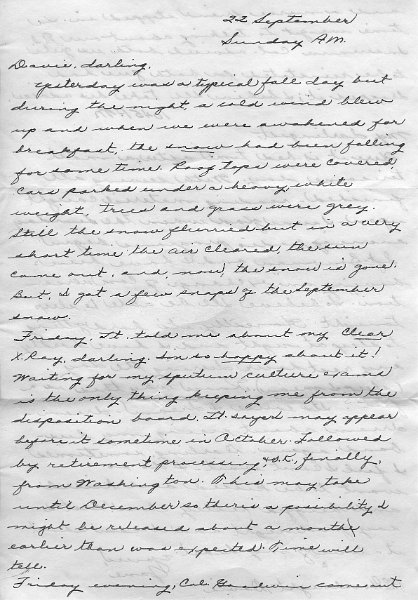 22 September
Sunday A.M.
Davie, darling,
Yesterday was a typical fall day but
during the night, a cold wind blew
up and when we were awakened for
breakfast, the snow had been falling
for some time. Roof tops were covered,
cars parked under a heavy, white
weight, trees and grass were grey.
Still the snow flurried but in a very
short time the air cleared, the sun
came out, and, now, the snow is gone.
But, I got a few snaps of the September
snow.
Friday, Lt. told me about my Clear
X Ray, darling. Im so happy about it!
Waiting for my sputum culture exams
is the only thing keeping me from the
disposition board. Lt. says I may appear
before it sometime in October. Followed
by retirement processing, & O.K., finally,
from Washington. This may take
until December so there is a possibility I
might be released about a month
earlier than was expected. Time will
tell.
Friday evening, Col. came out